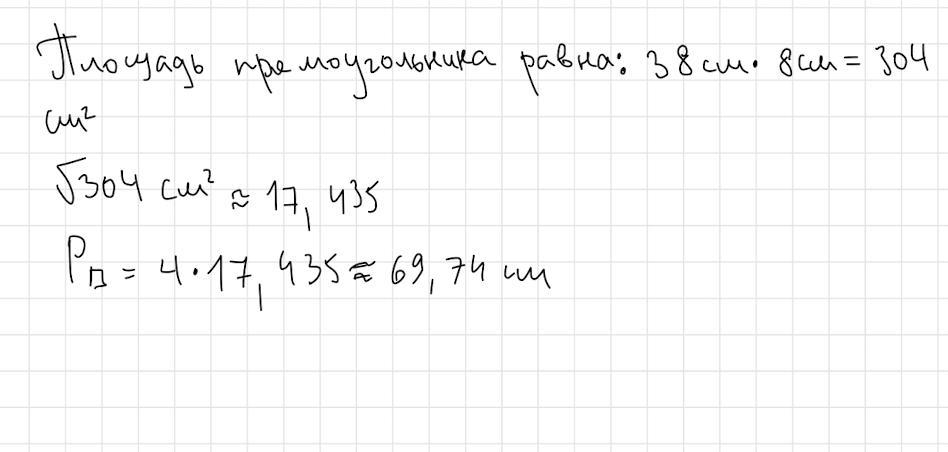 Площадь прямоугольника равна: 38 см · 8 см = 304
см²
√304 см² ≈ 17,435
P□ = 4 · 17,435 ≈ 69,74 см